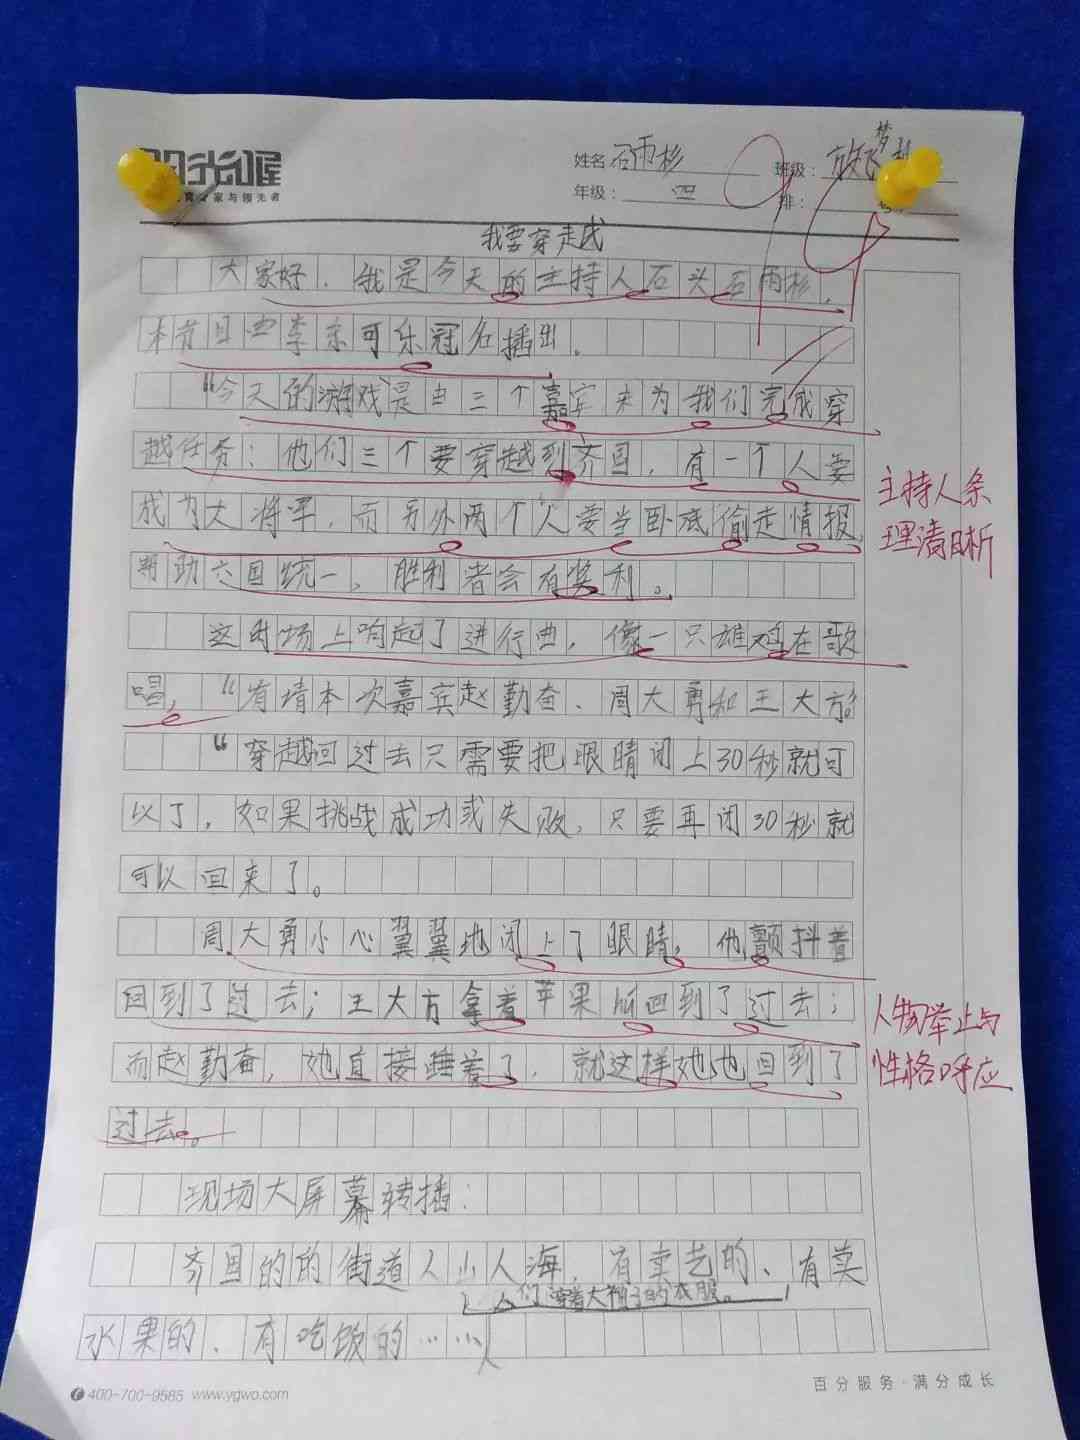 阳光喔
姓名 石雨杉 班级： 放飞梦想
年级： 四 排：
我要穿走成
大家好，我是今天的主持人石头石雨杉，
本节目由李东可乐冠名播出。
“今天的游戏是由三个嘉宾来为我们完成穿
越任务：他们三个要穿越到齐国，有一个人要
成为大将军，而另外两个人要当卧底偷走情报，
帮助六国统一，胜利者会有奖利。
主持人条
理清晰
这时场上响起了进行曲，像一只雄鸡在歌
唱，“有请本次嘉宾赵勤奋、周大勇和王大方”
“穿越回过去只需要把眼睛闭上30秒就可
以了，如果挑战成功或失败，只要再闭30秒就
可以回来了。
周大勇小心翼翼地闭上了眼睛，他颤抖着
回到了过去；王大方拿着苹果 回到了过去；
而赵勤奋，她直接睡着了，就这样她也回到了
过去。
人物举止与
性格呼应
现场大屏幕转播：
齐国的的街道人山人海，有卖艺的、有卖
人们穿着大袖子的衣服。
水果的、有吃饭的……
400-700-9585 www.ygwo.com
百分服务·满分成长